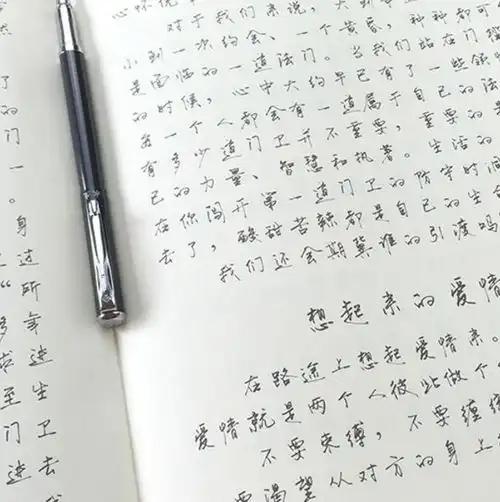 对于我们来说，大到
小到一次约会、一个黄昏，种种都可
是面临的一道法门。当我们站在门
的时候，心中大约早已有了一些领
每一个人都会有一道属于自己的法
有多少道门卫并不重要，重要的
己的力量、智慧和执著。生活的
在你闯开第一道门卫的防守时
去了，酸甜苦辣都是自己的生
我们还会期冀谁的引渡吗
想起来的爱情
在路途上想起爱情来。
爱情就是两个人彼此做个
不要束缚，不要缠
要渴望从对方的身上
的
门
一
。
身
进
所
年
进
生
卫
去